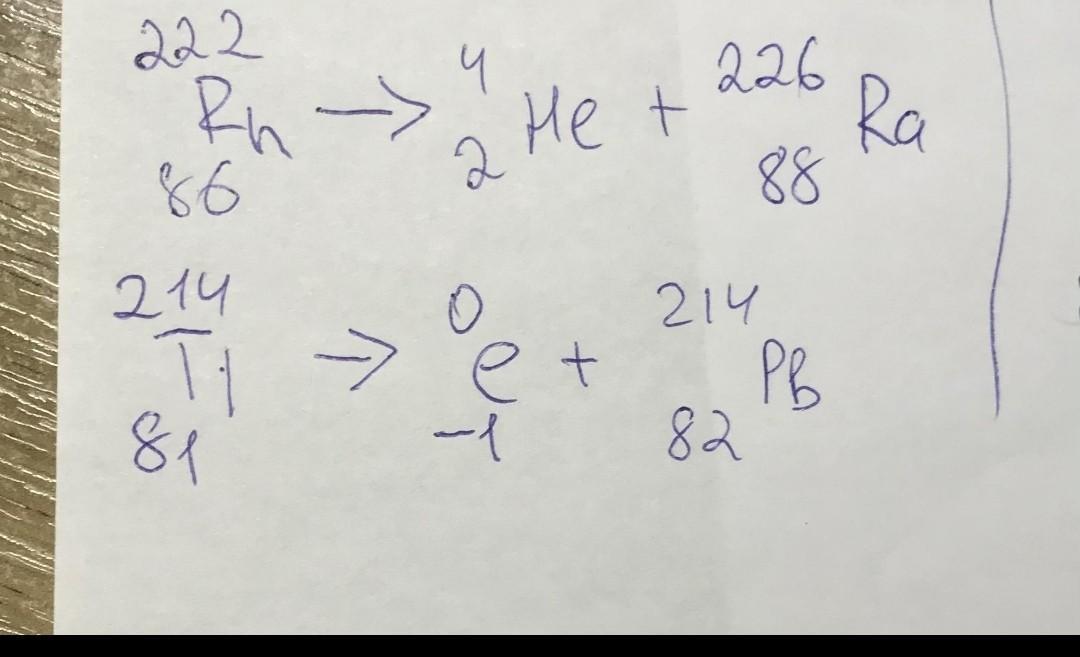 ²²²₈₆Rn → ⁴₂He + ²²⁶₈₈Ra
²¹⁴₈₁Tl → ⁰₋₁e + ²¹⁴₈₂Pb